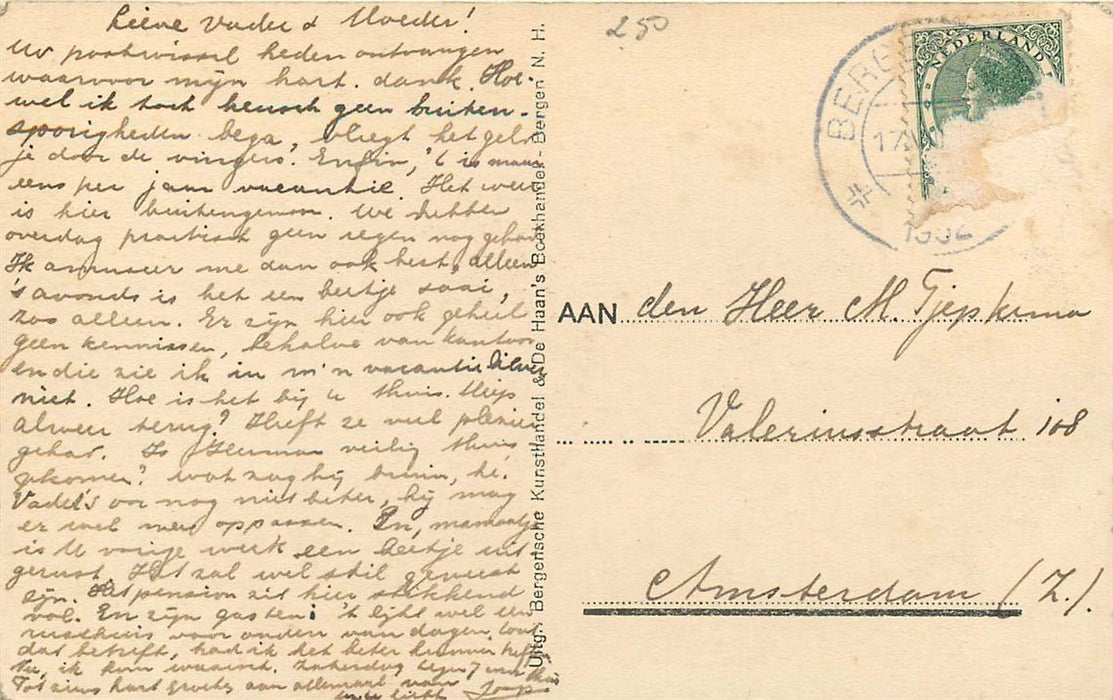 Lieve Vader & Moeder!
Uw postwissel heden ontvangen
waarvoor mijn hart. dank. Hoe-
wel ik toch heusch geen buiten-
sporigheden bega, vliegt het geld
je door de vingers. Enfin, 't is maar
eens per jaar vacantie. Het weer
is hier buitengewoon. We hebben
overdag practisch geen regen nog gehad.
Ik amuseer me dan ook best, alleen
's avonds is het een beetje saai,
zoo alleen. Er zijn hier ook geheel
geen kennissen, behalve van kantoor
en die zie ik in m'n vacantie liever
niet. Hoe is het bij U thuis. Meijs
alweer terug? Heeft ze veel plezier
gehad. Is Herman veilig thuis
gekomen? wat zag hij bruin, hè.
Vader's oor nog niet beter, hij mag
er wel mee oppassen. En, mamaatje
is U vorige week een beetje uit
gerust. Het zal wel stil geweest
zijn. Het pension zit hier stikkend
vol. En zijn gasten! 't lijkt wel een
voor ouden van dagen, wat
dat betreft, had ik het beter kunnen
Nu, ik kom Zaterdag 7 uur thuis
Tot ziens hart groeten aan allemaal van
250
BERGEN
17
1932
NEDERLAND
AAN den Heer M. Tjepkema
Valeriusstraat 108
Amsterdam (Z.).
Uitg.: Bergensche Kunsthandel & De Haan's Boekhandel - Bergen N. H.